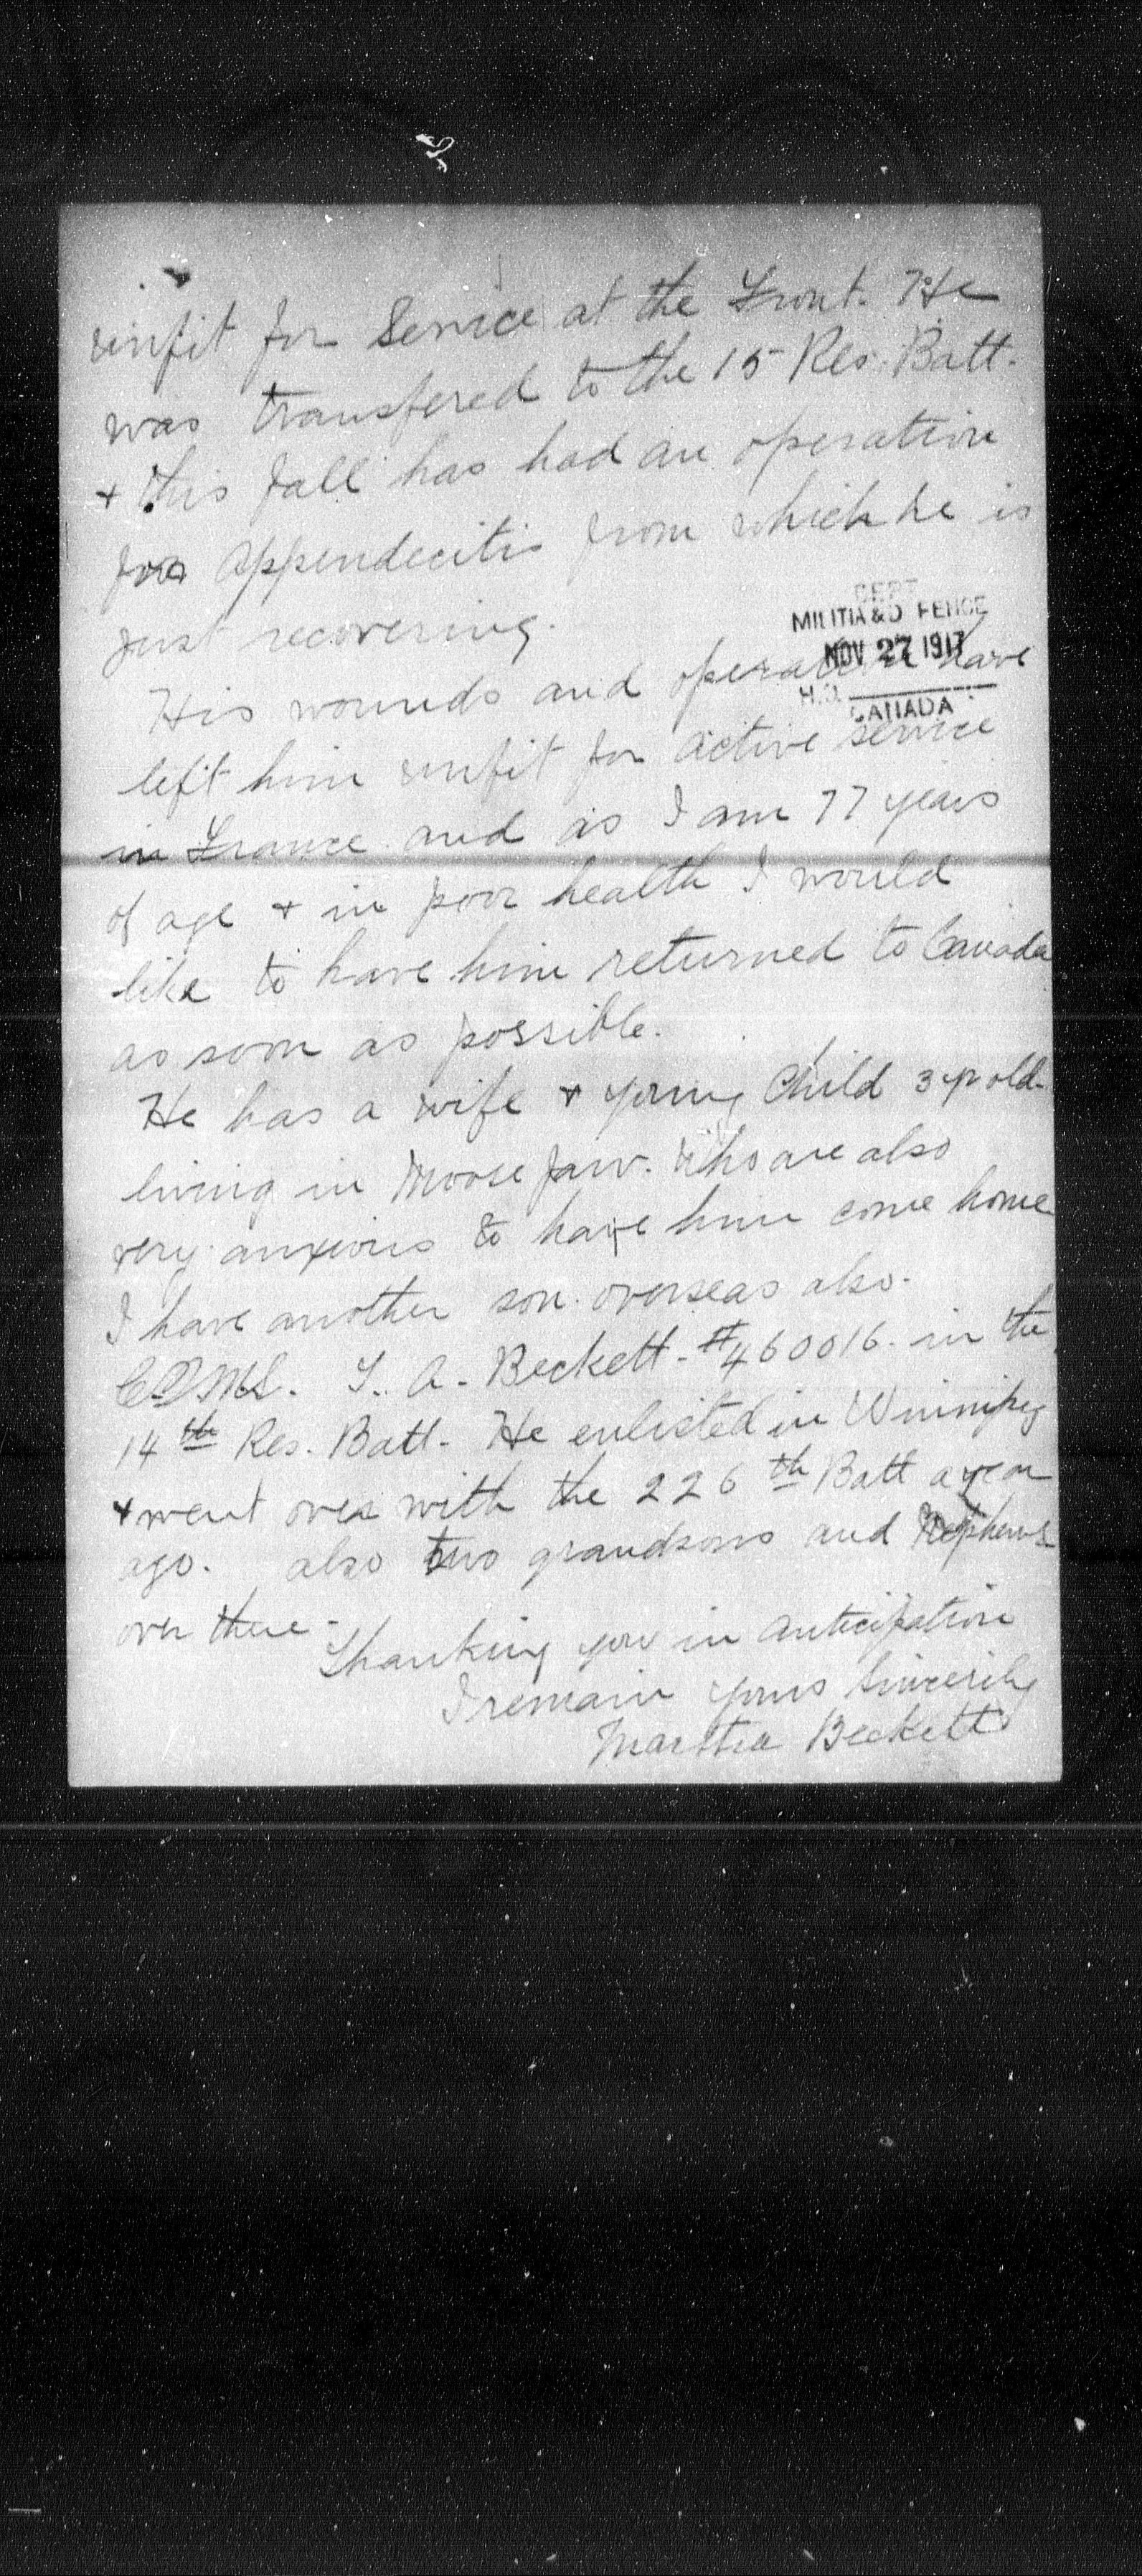 unfit for Service at the Front. He
was transfered to the 15 Res. Batt.
+ this fall has had an operation
for Appendecitis from which he is
just recovering.
DEPT.
MILITIA & D FENCE
NOV 27 1917
H.Q.
CANADA
His wounds and operation have
left him unfit for active service
in France and as I am 77 years
of age + in poor health I would
like to have him returned to Canada
as soon as possible.
He has a wife + young Child 3 yr old
living in Moose Jaw. Who are also
very anxious to have him come home
I have another son overseas also.
A. Beckett - #460016. in the
14th Res. Batt. He enlisted in Winnipeg
+ went over with the 226th Batt a year
ago. also two grandsons and Nephews
over there -
Thanking you in anticipation
I remain yours Sincerely
Martha Beckett